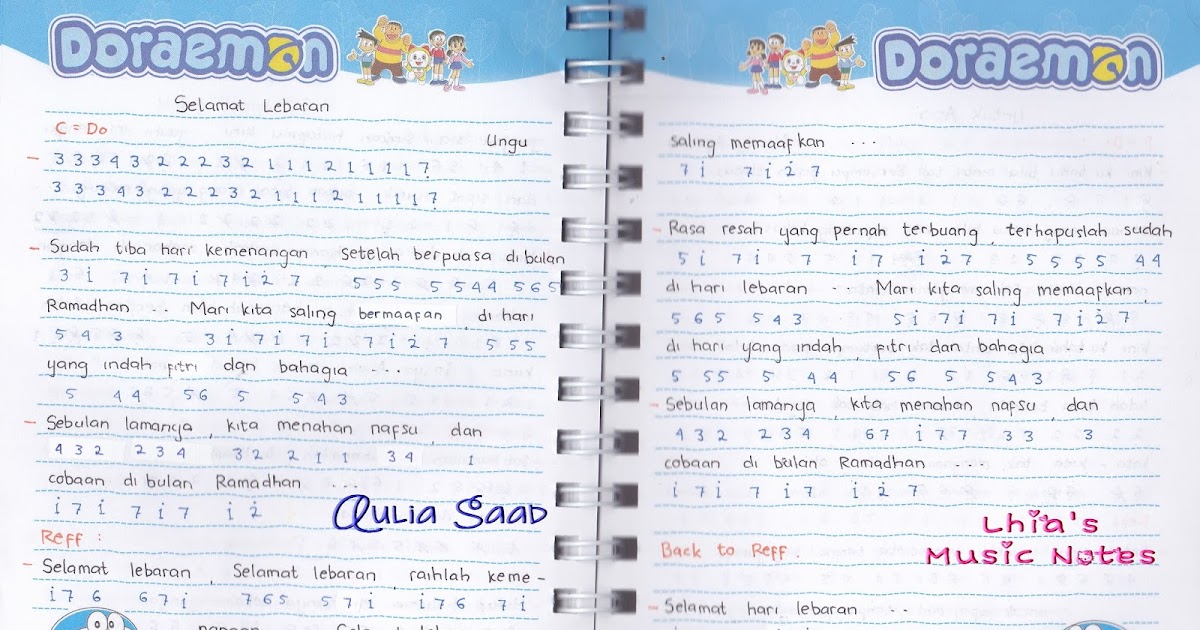 Doraemon
Selamat Lebaran
C = Do
Ungu
- 3 3 3 4 3 2 2 2 3 2 1 1 1 2 1 1 1 1 7̣
3 3 3 4 3 2 2 2 3 2 1 1 1 2 1 1 1 1 7̣
- Sudah tiba hari kemenangan , setelah berpuasa di bulan
3 i 7 i 7 i 7 i 2̇ 7 5 5 5 5 5 4 4 5 6 5
Ramadhan ... Mari kita saling bermaafan , di hari
5 4 3 3 i 7 i 7 i 7 i 2̇ 7 5 5 5
yang indah fitri dan bahagia ...
5 4 4 5 6 5 5 4 3
- Sebulan lamanya , kita menahan nafsu , dan
4 3 2 2 3 4 3 2 2 1 1 3 4 1
cobaan di bulan Ramadhan ...
i 7 i 7 i 7 i 2̇
Aulia Saad
Reff :
- Selamat lebaran , Selamat lebaran , raihlah keme -
i 7 6 6 7 i 7 6 5 5 7 i i 7 6 7 i
Doraemon
saling memaafkan ...
7 i 7 i 2̇ 7
- Rasa resah yang pernah terbuang , terhapuslah sudah
5 i 7 i 7 i 7 i 2̇ 7 5 5 5 5 4 4
di hari lebaran ... Mari kita saling memaafkan ,
5 6 5 5 4 3 5 i 7 i 7 i 7 i 2̇ 7
di hari yang indah , fitri dan bahagia ...
5 5 5 5 4 4 5 6 5 5 4 3
- Sebulan lamanya , kita menahan nafsu , dan
4 3 2 2 3 4 6 7 i 7 7 3 3 3
cobaan di bulan Ramadhan ...
i 7 i 7 i 7 i 2̇ 7
Lhia's
Music Notes
Back to Reff .
- Selamat hari lebaran ...